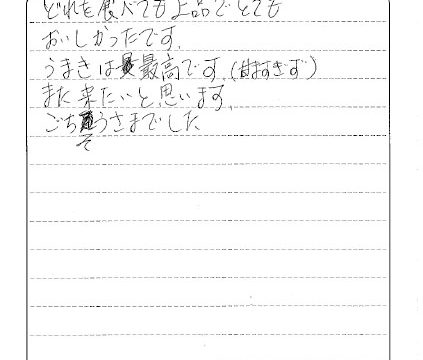 どれを食べても上品でとても
おいしかったです。
うまきは最高です。(甘すぎず)
また来たいと思います。
ごちそうさまでした